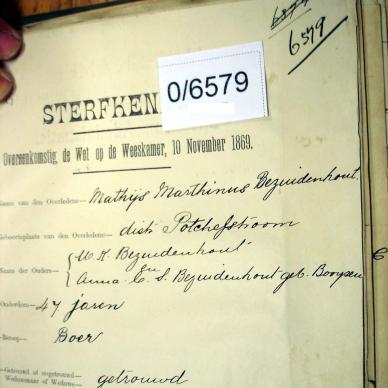 6579
6579
0/6579
STERFKEN
Overeenkomstig de Wet op de Weeskamer, 10 November 1869.
Naam van den Overledene— Mathijs Marthinus Bezuidenhout
Geboorteplaats van den Overledene— dist Potchefstroom
Naam der Ouders— { W. K. Bezuidenhout
En
Anna E. S. Bezuidenhout geb. Booysen
Ouderdom— 47 jaren
Beroep— Boer
Getrouwd of ongetrouwd
Weduwenaar of Weduwe— getrouwd